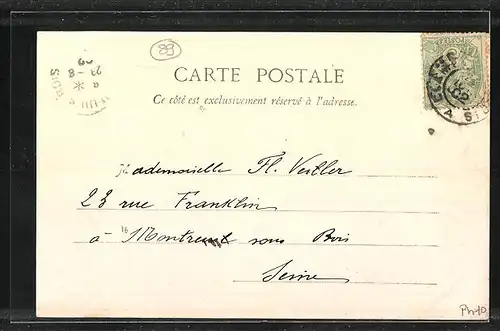 88
CARTE POSTALE
Ce côté est exclusivement réservé à l'adresse.
Mademoiselle Fl. Veiller
23 rue Franklin
à Montreuil sous Bois
Seine
Ph10